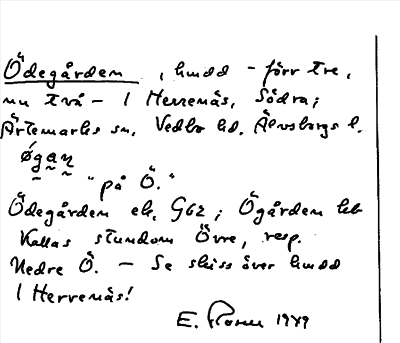 Ödegården, hmdd - förr tre,
nu två - i Herrenäs, Södra;
Ärtemarks sn, Vedbo hd, Älvsborgs l.
øgaṇ
"på Ö."
Ödegården ek. G62; Ögården
kallas stundom Övre, resp.
Nedre Ö. - Se skiss över hmdd
i Herrenäs!
E. 1949